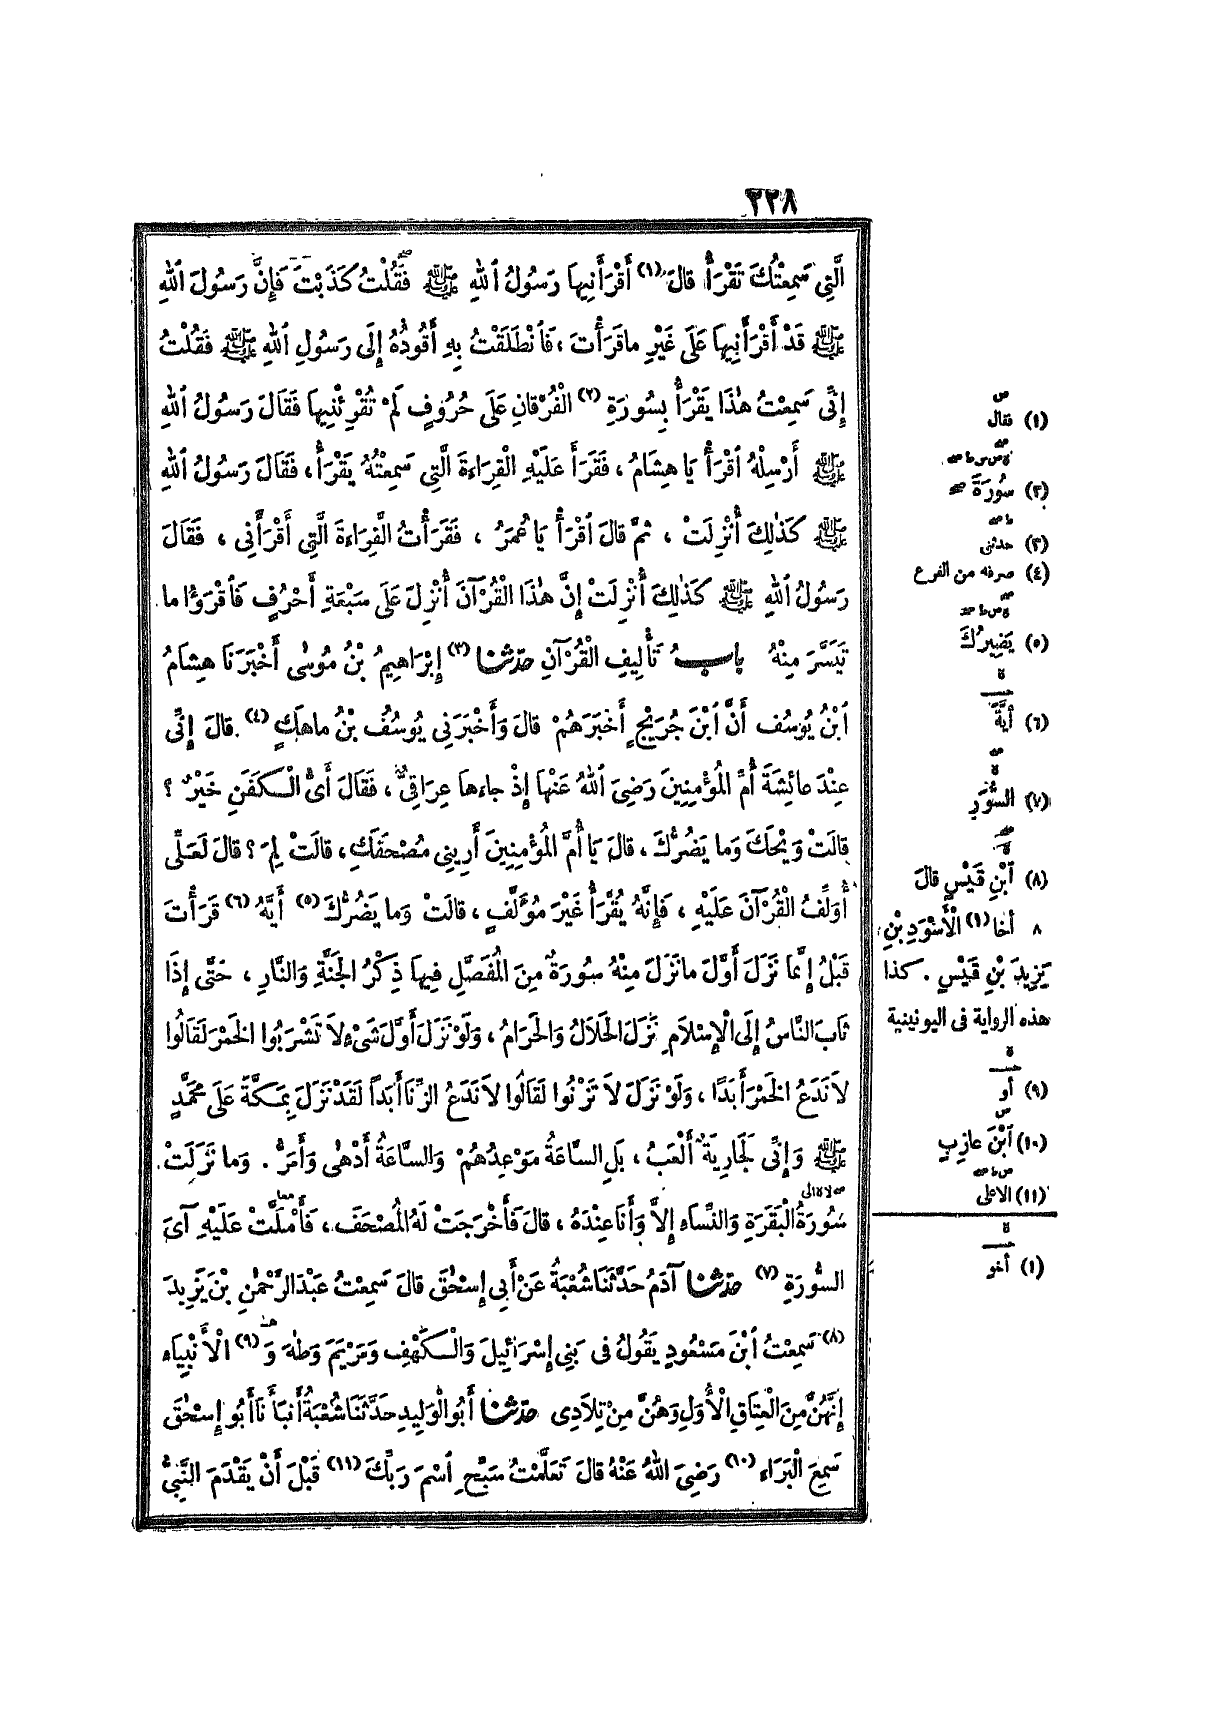 ٢٢٨
الَّتِي سَمِعْتُكَ تَقْرَأُ قالَ (١) أَقْرَأَنِيهَا رَسُولُ اللهِ ﷺ فَقُلْتُ كَذَبْتَ فَإِنَّ رَسُولَ اللهِ
ﷺ قَدْ أَقْرَأَنِيهَا عَلَى غَيْرِ ماقَرَأْتَ ، فَٱنْطَلَقْتُ بِهِ أَقُودُهُ إِلَى رَسُولِ اللهِ ﷺ فَقُلْتُ
إِنِّي سَمِعْتُ هٰذَا يَقْرَأُ بِسُورَةِ (٢) الْفُرْقانِ عَلَى حُرُوفٍ لَمْ تُقْرِئْنِيهَا فَقَالَ رَسُولُ اللهِ
ﷺ أَرْسِلْهُ ٱقْرَأْ يَا هِشَامُ ، فَقَرَأَ عَلَيْهِ الْقِرَاءَةَ الَّتِي سَمِعْتُهُ يَقْرَأُ ، فَقَالَ رَسُولُ اللهِ
ﷺ كَذٰلِكَ أُنْزِلَتْ ، ثُمَّ قالَ ٱقْرَأْ يَا عُمَرُ ، فَقَرَأْتُ الْقِرَاءَةَ الَّتِي أَقْرَأَنِي ، فَقَالَ
رَسُولُ اللهِ ﷺ كَذٰلِكَ أُنْزِلَتْ إِنَّ هٰذَا الْقُرْآنَ أُنْزِلَ عَلَى سَبْعَةِ أَحْرُفٍ فَٱقْرَؤُا ما
تَيَسَّرَ مِنْهُ بابُ تَأْلِيفِ الْقُرْآنِ حدّثنا (٣) إِبْرَاهِيمُ بْنُ مُوسٰى أَخْبَرَنَا هِشَامُ
ٱبْنُ يُوسُفَ أَنَّ ٱبْنَ جُرَيْجٍ أَخْبَرَهُمْ قالَ وَأَخْبَرَنِي يُوسُفُ بْنُ ماهَكٍ (٤) قالَ إِنِّي
عِنْدَ عائِشَةَ أُمِّ الْمُؤْمِنِينَ رَضِيَ اللهُ عَنْهَا إِذْ جاءَها عِرَاقِيٌّ ، فَقَالَ أَيُّ الْكَفَنِ خَيْرٌ ؟
قالَتْ وَيْحَكَ وَما يَضُرُّكَ ، قالَ يَا أُمَّ الْمُؤْمِنِينَ أَرِينِي مُصْحَفَكِ ، قالَتْ لِمَ ؟ قالَ لَعَلِّي
أُوَلِّفُ الْقُرْآنَ عَلَيْهِ ، فَإِنَّهُ يُقْرَأُ غَيْرَ مُؤَلَّفٍ ، قالَتْ وَما يَضُرُّكَ (٥) أَيَّهُ (٦) قَرَأْتَ
قَبْلُ إِنَّمَا نَزَلَ أَوَّلَ مانَزَلَ مِنْهُ سُورَةٌ مِنَ الْمُفَصَّلِ فِيهَا ذِكْرُ الْجَنَّةِ وَالنَّارِ ، حَتَّى إِذَا
ثَابَ النَّاسُ إِلَى الْإِسْلَامِ نَزَلَ الْحَلَالُ وَالْحَرَامُ ، وَلَوْ نَزَلَ أَوَّلَ شَيْءٍ لاَ تَشْرَبُوا الْخَمْرَ لَقَالُوا
لاَ نَدَعُ الْخَمْرَ أَبَدًا ، وَلَوْ نَزَلَ لاَ تَزْنُوا لَقَالُوا لاَ نَدَعُ الزِّنَا أَبَدًا لَقَدْ نَزَلَ بِمَكَّةَ عَلَى مُحَمَّدٍ
ﷺ وَإِنِّي لَجَارِيَةٌ أَلْعَبُ ، بَلِ السَّاعَةُ مَوْعِدُهُمْ وَالسَّاعَةُ أَدْهٰى وَأَمَرُّ . وَما نَزَلَتْ
سُورَةُ الْبَقَرَةِ وَالنِّسَاءِ إِلاَّ وَأَنَا عِنْدَهُ ، قالَ فَأَخْرَجَتْ لَهُ الْمُصْحَفَ ، فَأَمْلَتْ عَلَيْهِ آيَ
السُّورَةِ (٧) حدّثنا آدَمُ حَدَّثَنَا شُعْبَةُ عَنْ أَبِي إِسْحٰقَ قالَ سَمِعْتُ عَبْدَ الرَّحْمٰنِ بْنَ يَزِيدَ
(٨) سَمِعْتُ ٱبْنَ مَسْعُودٍ يَقُولُ فِي بَنِي إِسْرَائِيلَ وَالْكَهْفِ وَمَرْيَمَ وَطٰهَ وَ (٩) الْأَنْبِيَاءِ
إِنَّهُنَّ مِنَ الْعِتَاقِ الْأُوَلِ وَهُنَّ مِنْ تِلَادِي حدّثنا أَبُو الْوَلِيدِ حَدَّثَنَا شُعْبَةُ أَنْبَأَنَا أَبُو إِسْحٰقَ
سَمِعَ الْبَرَاءَ (١٠) رَضِيَ اللهُ عَنْهُ قالَ تَعَلَّمْتُ سَبِّحِ ٱسْمَ رَبِّكَ (١١) قَبْلَ أَنْ يَقْدَمَ النَّبِيُّ
(١) فقال
(٢) سُورَةَ
(٣) حدثنى
(٤) صرفه من الفرع
(٥) يَضِيرُكَ
(٦) أَيَّةَ
(٧) السُّوَرِ
(٨) ٱبْنِ قَيْسٍ قالَ
٨ أخا (١) الْأَسْوَدِ بْنِ
يَزِيدَ بْنِ قَيْسٍ . كذا
هذه الرواية فى اليونينية
(٩) أو
(١٠) ٱبْنَ عازِبٍ
(١١) الاعلى
(١) أخو